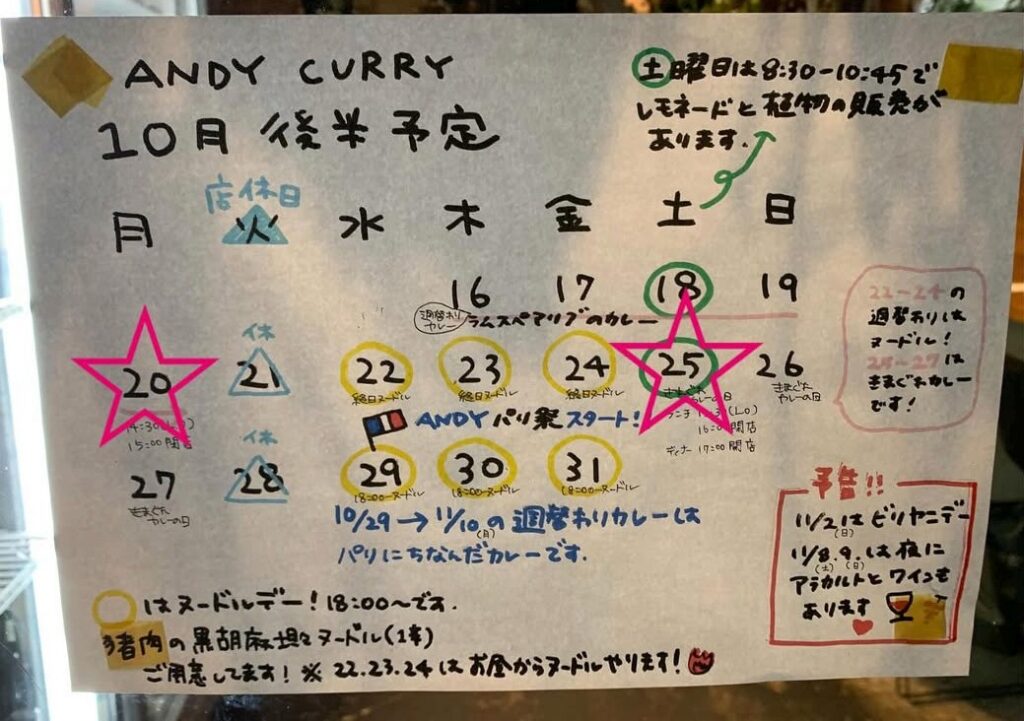 ANDY CURRY
10月 後半予定
土曜日は8:30-10:45で
レモネードと植物の販売が
あります.
店休日
月 火 水 木 金 土 日
16 17 18 19
週替わり
カレー
ラムスペアリブのカレー
休
20 21 22 23 24 25 26
終日ヌードル 終日ヌードル 終日ヌードル
きまぐれ
カレーの日
きまぐれ
カレーの日
14:30(L.O)
15:00閉店
(L.O)
16:00閉店
ディナー 17:00開店
ANDYパリ祭スタート!
休
27 28 29 30 31
きまぐれ
カレーの日
18:00〜ヌードル 18:00〜ヌードル 18:00〜ヌードル
10/29→11/10の週替わりカレーは
(月)
パリにちなんだカレーです.
22-24の
週替わりは
ヌードル!
25-27は
きまぐれカレー
です!
予告!!
11/2は ビリヤニデー
(日)
11/8.9.は夜に
(土)(日)
アラカルトとワインも
あります
はヌードルデー!18:00〜です.
猪肉の黒胡麻坦々ヌードル(1辛)
ご用意してます!※22.23.24はお昼からヌードルやります!